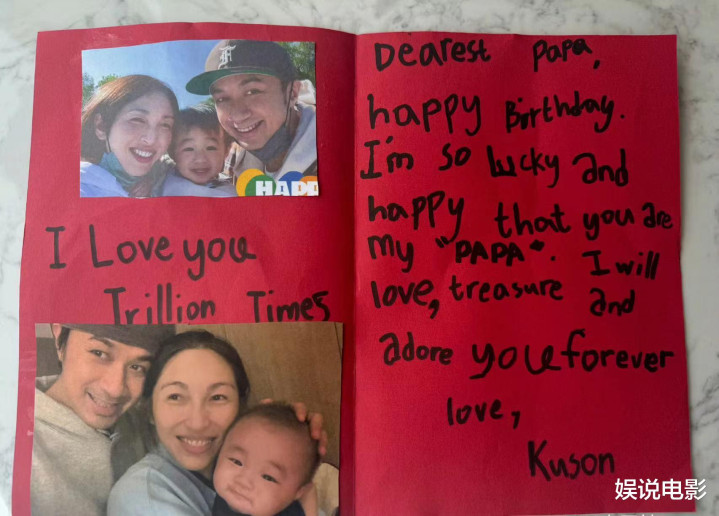 HAPP
I Love you
Trillion Times
Dearest Papa,
happy Birthday.
I'm so lucky and
happy that you are
my "PAPA". I will
love, treasure and
adore you forever
love,
Kuson
娱说电影